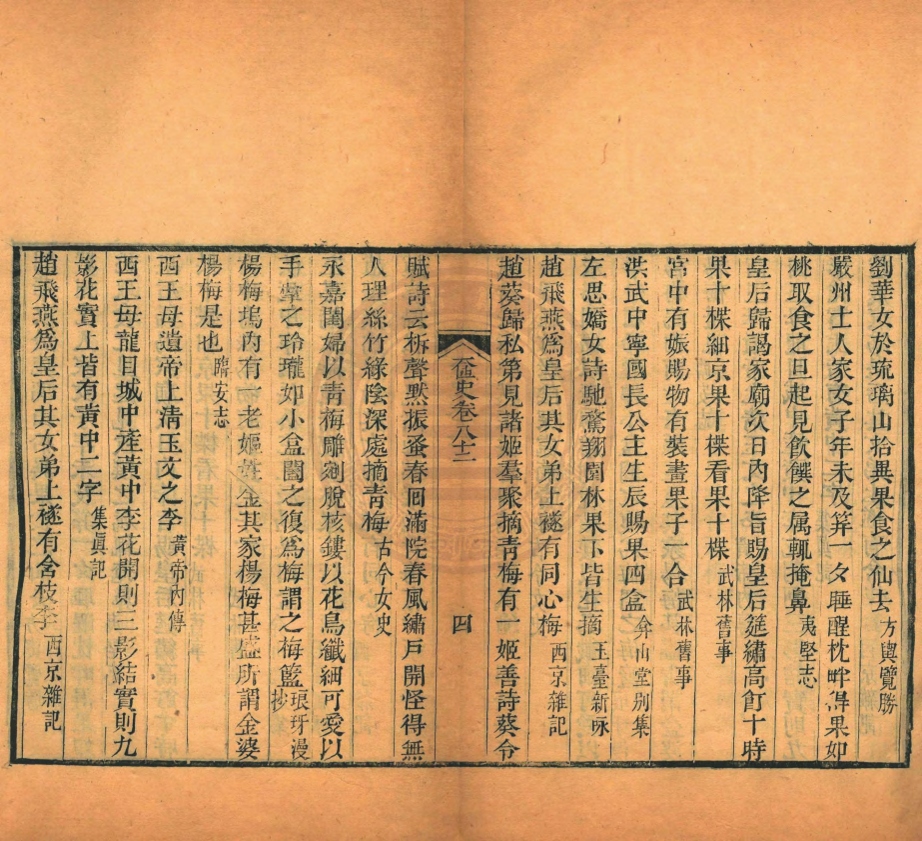 劉華女於琉璃山拾異果食之仙去方輿覽勝
嚴州士人家女子年未及筓一夕睡醒枕畔得果如
桃取食之旦起見飲饌之属輒掩鼻夷堅志
皇后歸謁家廟次日內降旨賜皇后筵繡高飣十時
果十楪細京果十楪看果十楪武林舊事
宮中有娠賜物有裝畫果子一合武林舊事
洪武中寧國長公主生辰賜果四盒弇山堂别集
左思嬌女詩馳騖翔園林果下皆生摘玉臺新咏
趙飛燕爲皇后其女弟上襚有同心梅西京雜記
趙葵歸私第見諸姬羣聚摘青梅有一姬善詩葵令
奩史卷八十二
四
賦詩云柝聲黙振蚤春囘滿院春風繡戸開怪得無
人理絲竹綠陰深處摘青梅古今女史
永嘉閨婦以青梅雕剜脫核鏤以花鳥纖細可愛以
手摰之玲瓏如小盒闔之復爲梅謂之梅籃琅玡漫抄
楊梅塢內有一老姬姓金其家楊梅甚盛所謂金婆
楊梅是也臨安志
西王母遺帝上清玉文之李黃帝內傳
西王母龍目城中産黃中李花開則三影結實則九
影花實上皆有黃中二字集眞記
趙飛燕爲皇后其女弟上襚有含枝李西京雜記